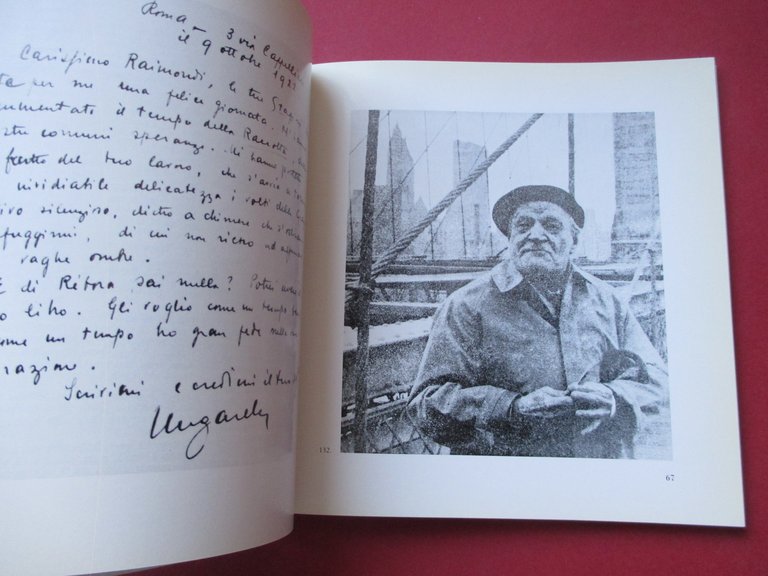 Roma –
3 via Cappellini
il 9 ottobre 192
Carissimo Raimondi, le tue
ta per me una felice giornata. M'
umentato il tempo della Raccolta,
stre comuni speranze. Mi hanno
frutto del tuo lavoro, che
invidiabile delicatezza i volti della
ivo silenzioso, dietro a chimere che
fuggirmi, di cui non riesco ad
vaghe ombre.
E di Rèbora sai nulla? Potrei
o libro. Gli voglio come un tempo
ome un tempo ho gran fede nella
razione.
Scrivimi e credimi il tuo
Ungaretti
132.
67